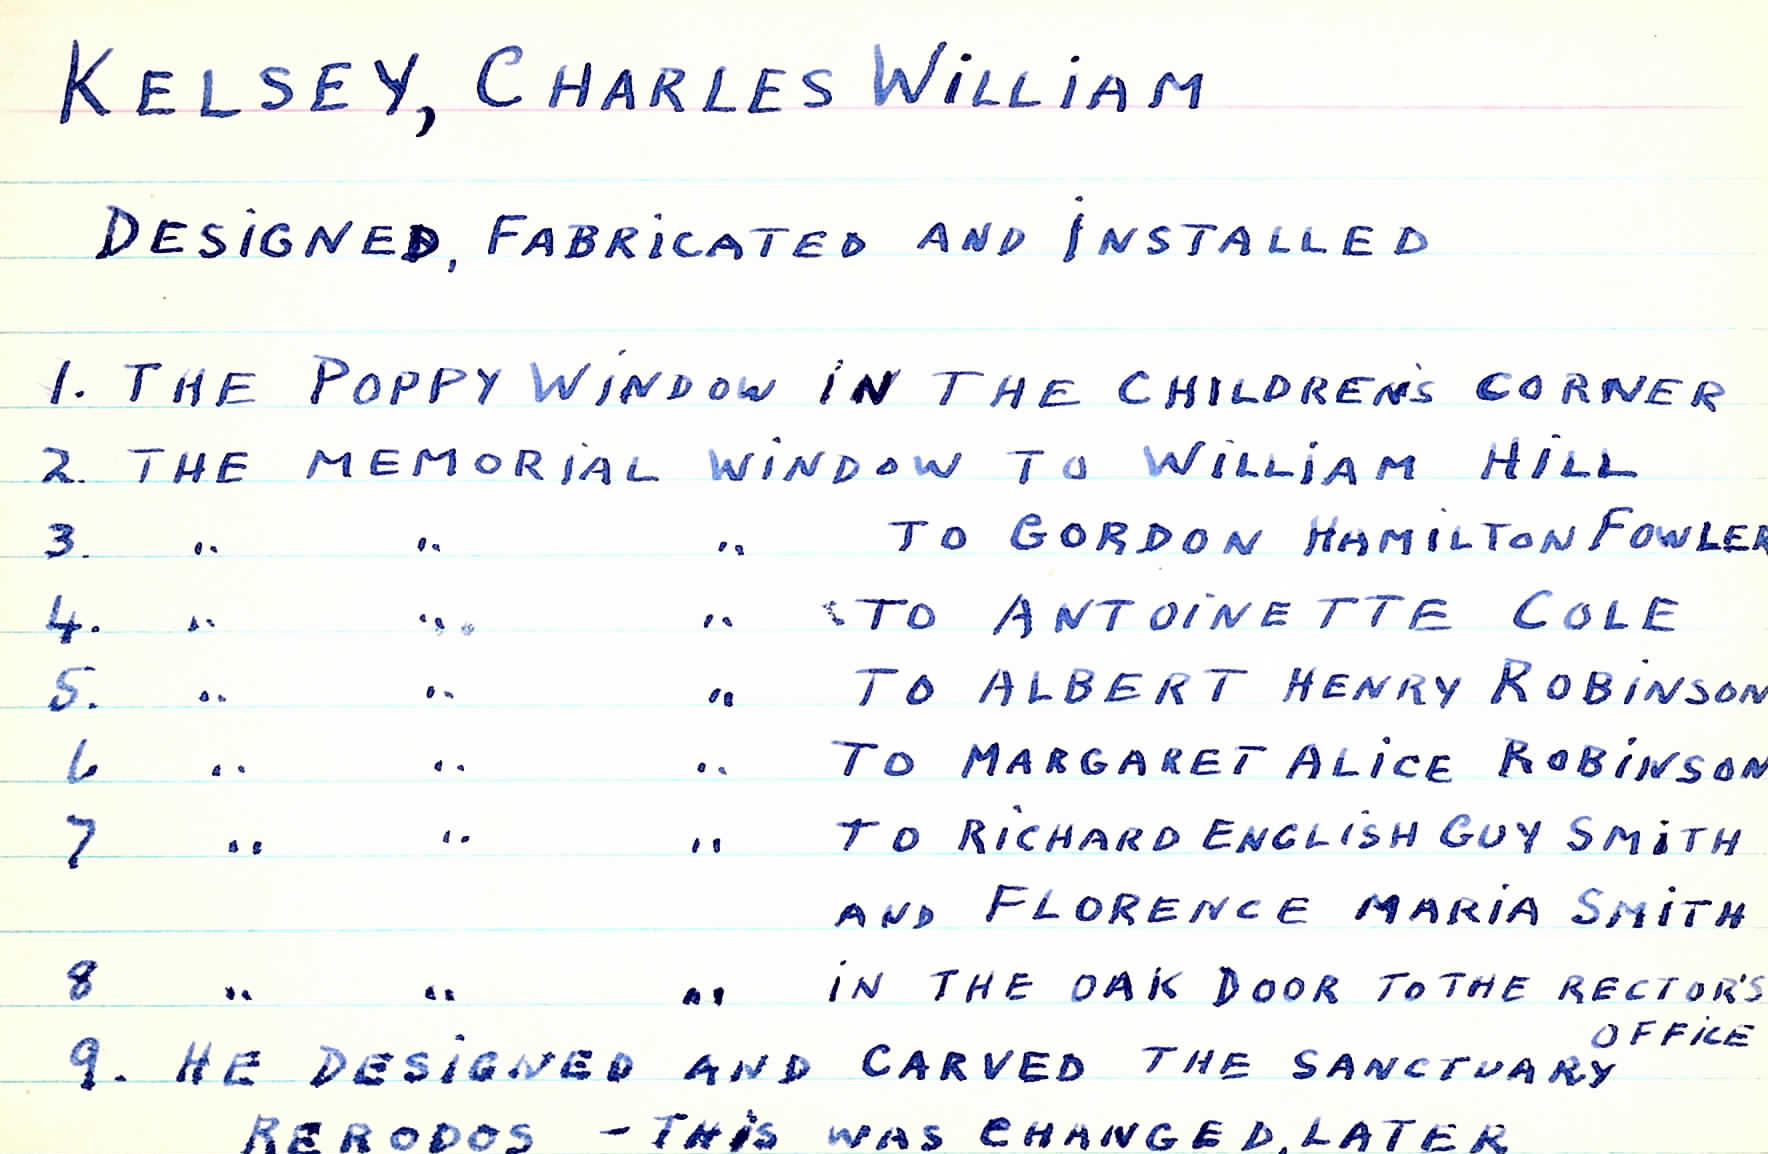 KELSEY, CHARLES WILLIAM
DESIGNED, FABRICATED AND INSTALLED
1. THE POPPY WINDOW IN THE CHILDREN'S CORNER
2. THE MEMORIAL WINDOW TO WILLIAM HILL
3. " " " TO GORDON HAMILTON FOWLER
4. " " " TO ANTOINETTE COLE
5. " " " TO ALBERT HENRY ROBINSON
6 " " " TO MARGARET ALICE ROBINSON
7 " " " TO RICHARD ENGLISH GUY SMITH
AND FLORENCE MARIA SMITH
8 " " " IN THE OAK DOOR TO THE RECTOR'S
OFFICE
9. HE DESIGNED AND CARVED THE SANCTUARY
RERODOS - THIS WAS CHANGED, LATER